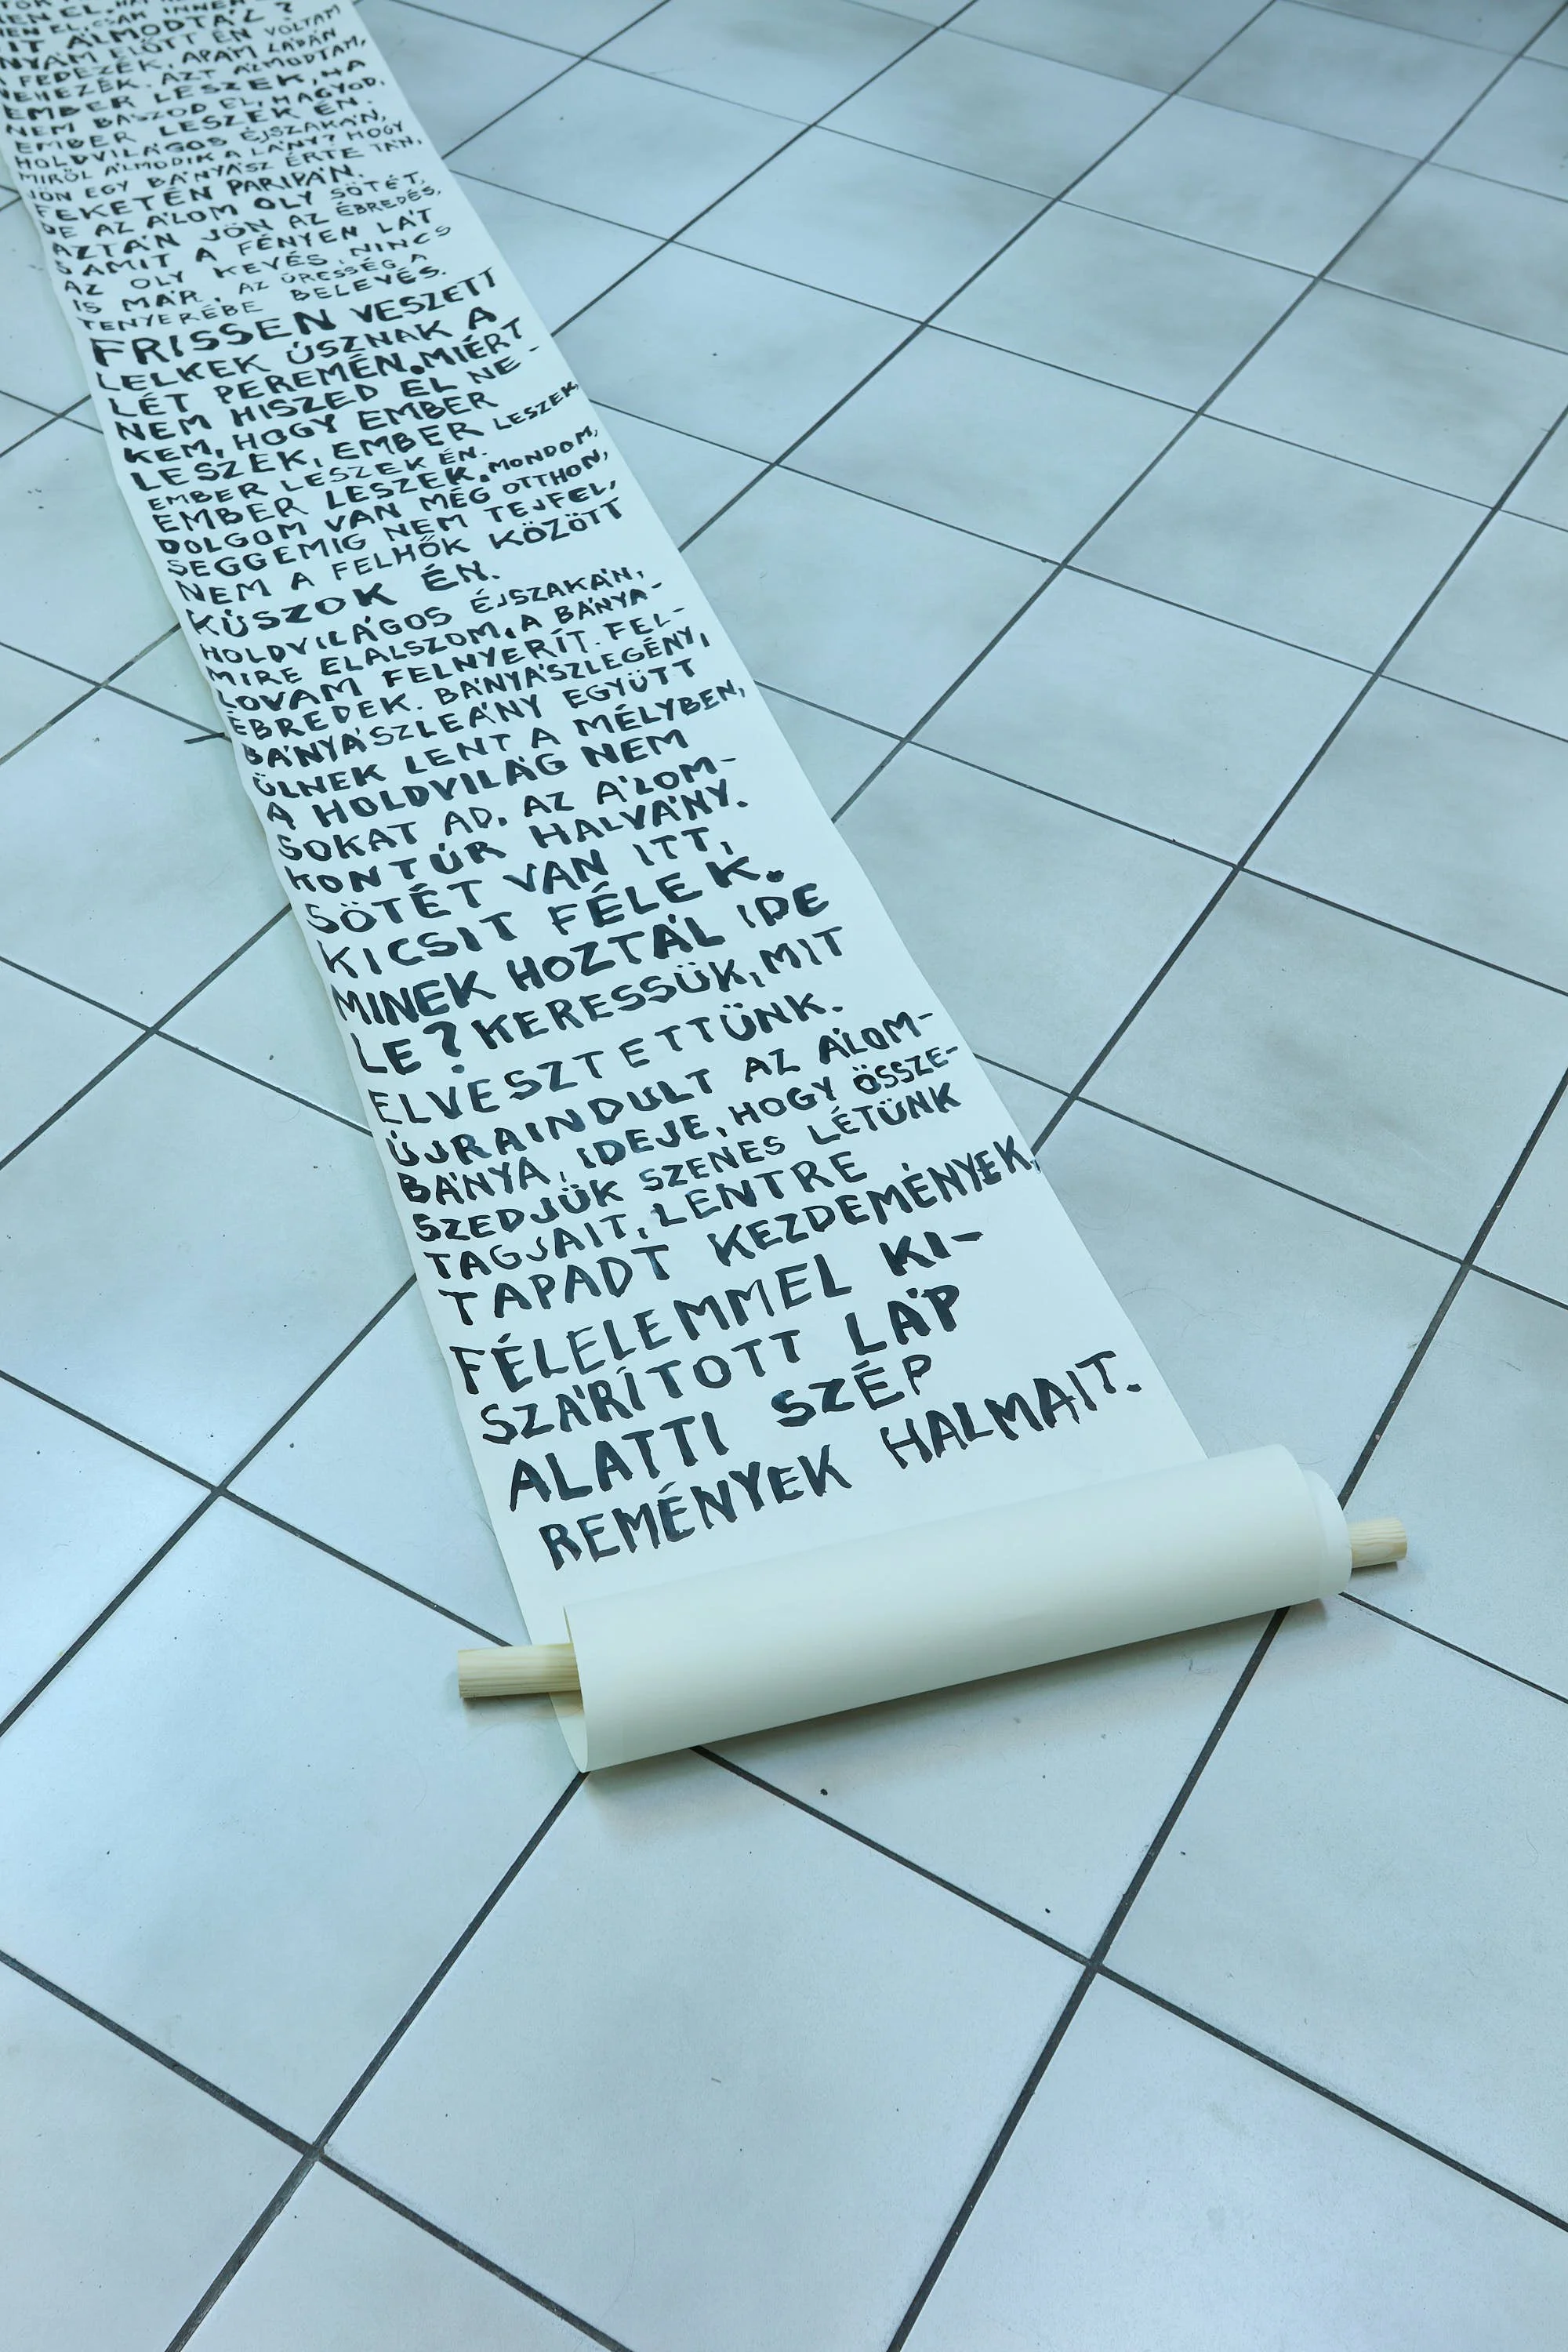 IT ÁLMODTÁL?
NYÁM ELŐTT ÉN VOLTAM
FEDEZÉK, APÁM LÁBÁN
NEHEZÉK. AZT ÁLMODTAM,
EMBER LESZEK, HA
NEM BASZOD EL, HAGYOD,
EMBER LESZEK ÉN.
HOLDVILÁGOS ÉJSZAKÁN,
MIRŐL ÁLMODIK A LÁNY? HOGY
JÖN EGY BÁNYÁSZ ÉRTE TÁN,
FEKETÉN PARIPÁN.
DE AZ ÁLOM OLY SÖTÉT,
AZTÁN JÖN AZ ÉBREDÉS,
S AMIT A FÉNYEN LÁT
AZ OLY KEVÉS, NINCS
IS MÁR, AZ ÜRESSÉG A
TENYERÉBE BELEVÉS.
FRISSEN VESZETT
LELKEK ÚSZNAK A
LÉT PEREMÉN. MIÉRT
NEM HISZED EL NE-
KEM, HOGY EMBER
LESZEK, EMBER LESZEK,
EMBER LESZEK ÉN.
EMBER LESZEK, MONDOM,
DOLGOM VAN MÉG OTTHON,
SEGGEMIG NEM TEJFEL,
NEM A FELHŐK KÖZÖTT
KÚSZOK ÉN.
HOLDVILÁGOS ÉJSZAKÁN,
MIRE ELALSZOM, A BÁNYA-
LOVAM FELNYERÍT. FEL-
ÉBREDEK. BÁNYÁSZLEGÉNY,
BÁNYÁSZLEÁNY EGYÜTT
ÜLNEK LENT A MÉLYBEN,
A HOLDVILÁG NEM
SOKAT AD, AZ ÁLOM-
KONTÚR HALVÁNY.
SÖTÉT VAN ITT,
KICSIT FÉLEK.
MINEK HOZTÁL IDE
LE? KERESSÜK, MIT
ELVESZTETTÜNK.
ÚJRAINDULT AZ ÁLOM-
BÁNYA, IDEJE, HOGY ÖSSZE-
SZEDJÜK SZENES LÉTÜNK
TAGJAIT, LENTRE
TAPADT KEZDEMÉNYEK,
FÉLELEMMEL KI-
SZÁRÍTOTT LÁP
ALATTI SZÉP
REMÉNYEK HALMAIT.